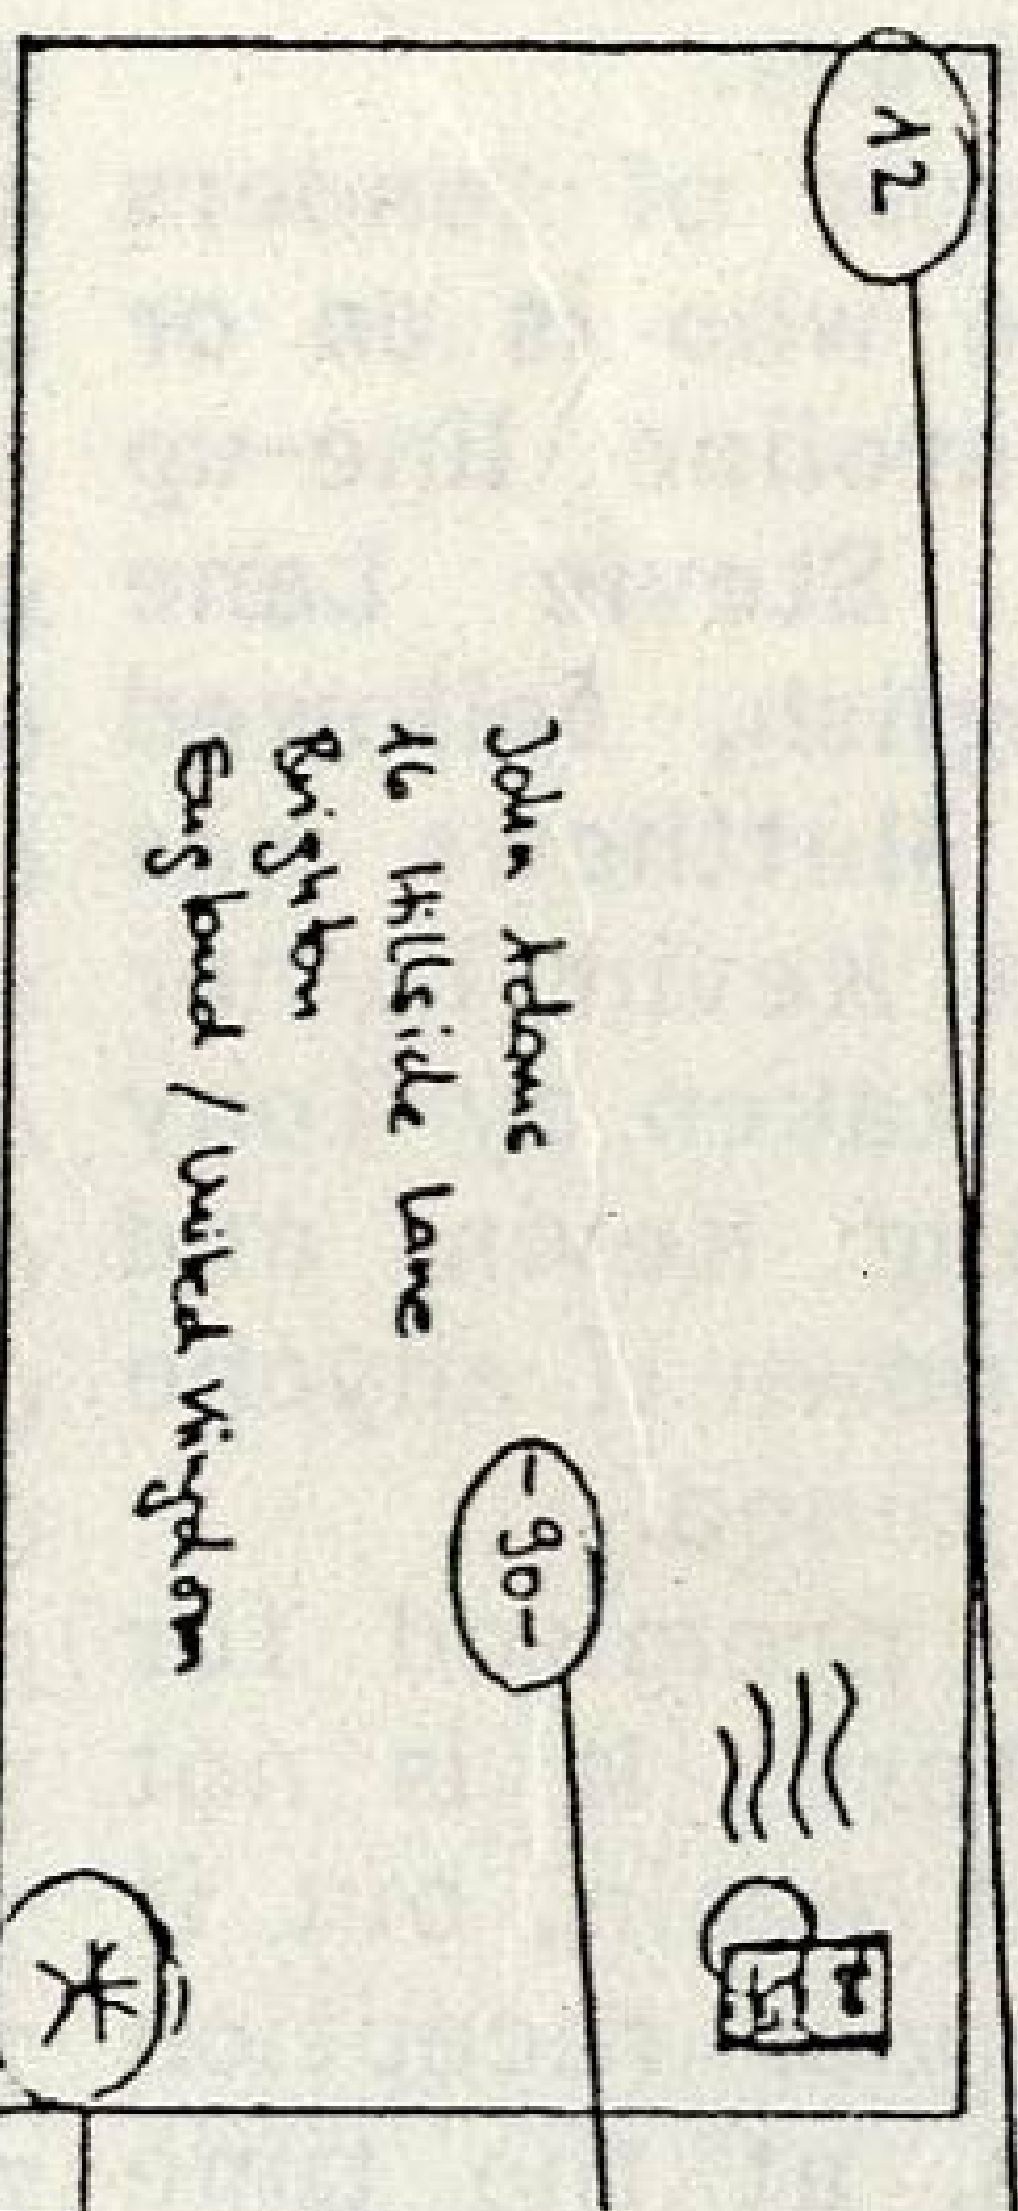 12
John Adams
16 Hillside Lane
Brighton
England / United Kingdom
-90-